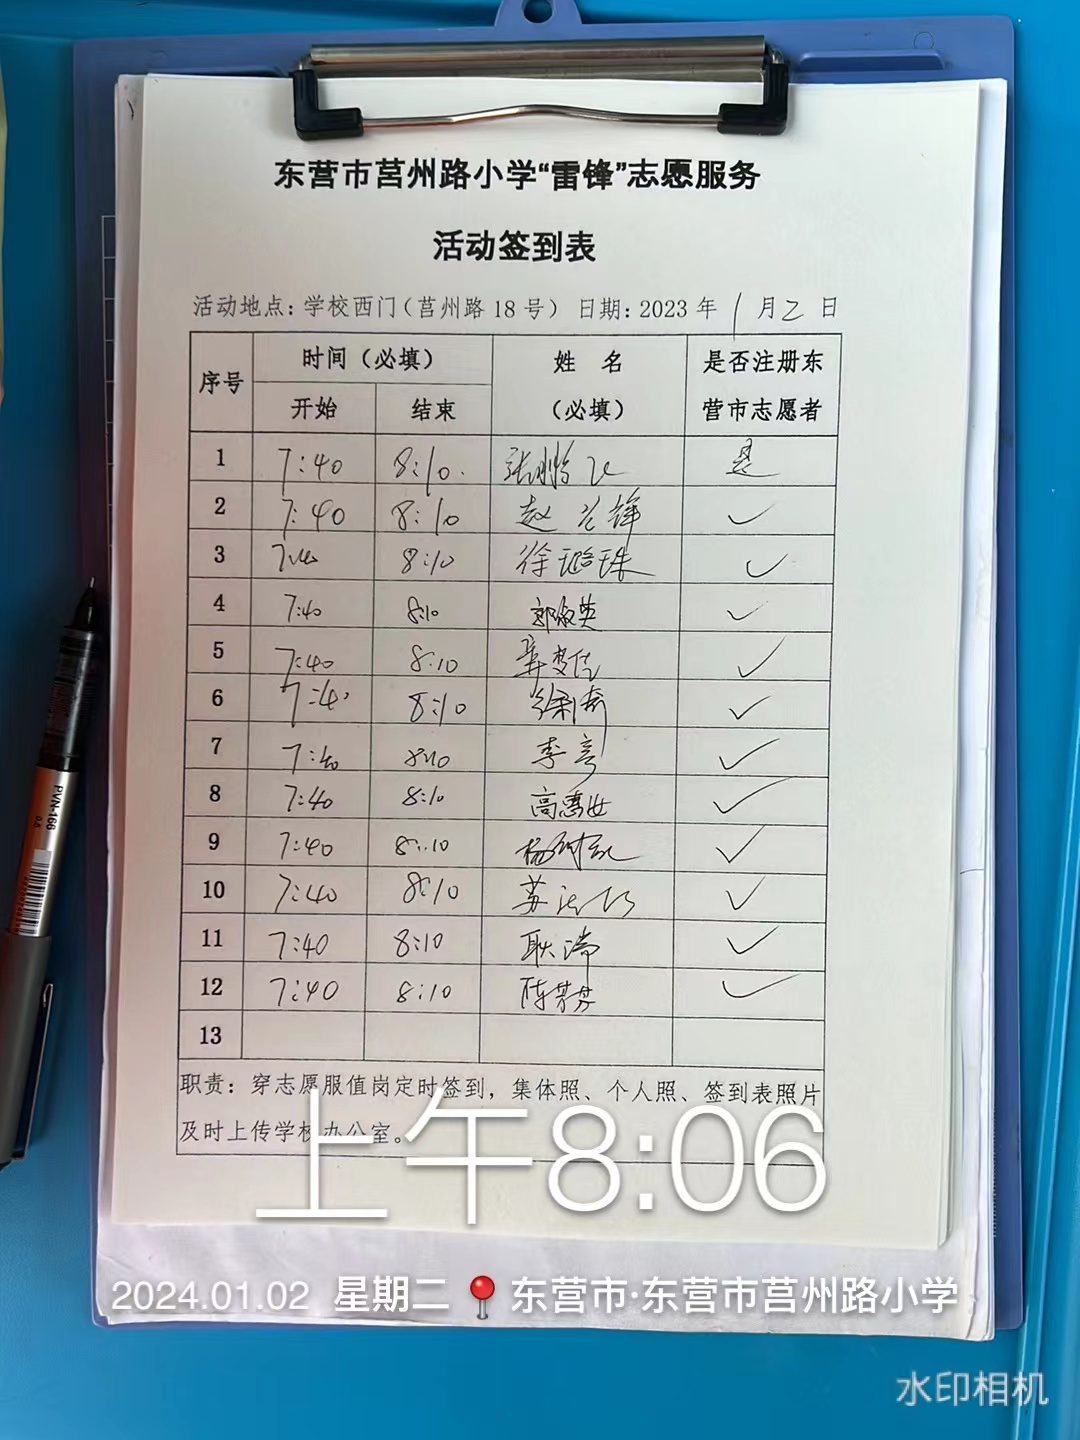 东营市莒州路小学“雷锋”志愿服务
活动签到表
活动地点：学校西门（莒州路 18 号） 日期：2023 年 1 月 2 日
序号 时间（必填） 姓 名（必填） 是否注册东营市志愿者
开始 结束
1 7:40 8:10. 张 是
2 7:40 8:10 赵 锋 ✓
3 7:40 8:10 徐璐珠 ✓
4 7:40 8:10 郭淑英 ✓
5 7:40 8:10 ✓
6 7:40 8:10 徐 ✓
7 7:40 8:10 李 ✓
8 7:40 8:10 高惠 ✓
9 7:40 8:10 杨 ✓
10 7:40 8:10 苏 ✓
11 7:40 8:10 耿瑞 ✓
12 7:40 8:10 陈芳芬 ✓
13
职责：穿志愿服值岗定时签到，集体照、个人照、签到表照片
及时上传学校办公室。
上午8:06
2024.01.02 星期二 东营市·东营市莒州路小学
水印相机
PVN-166
0.5